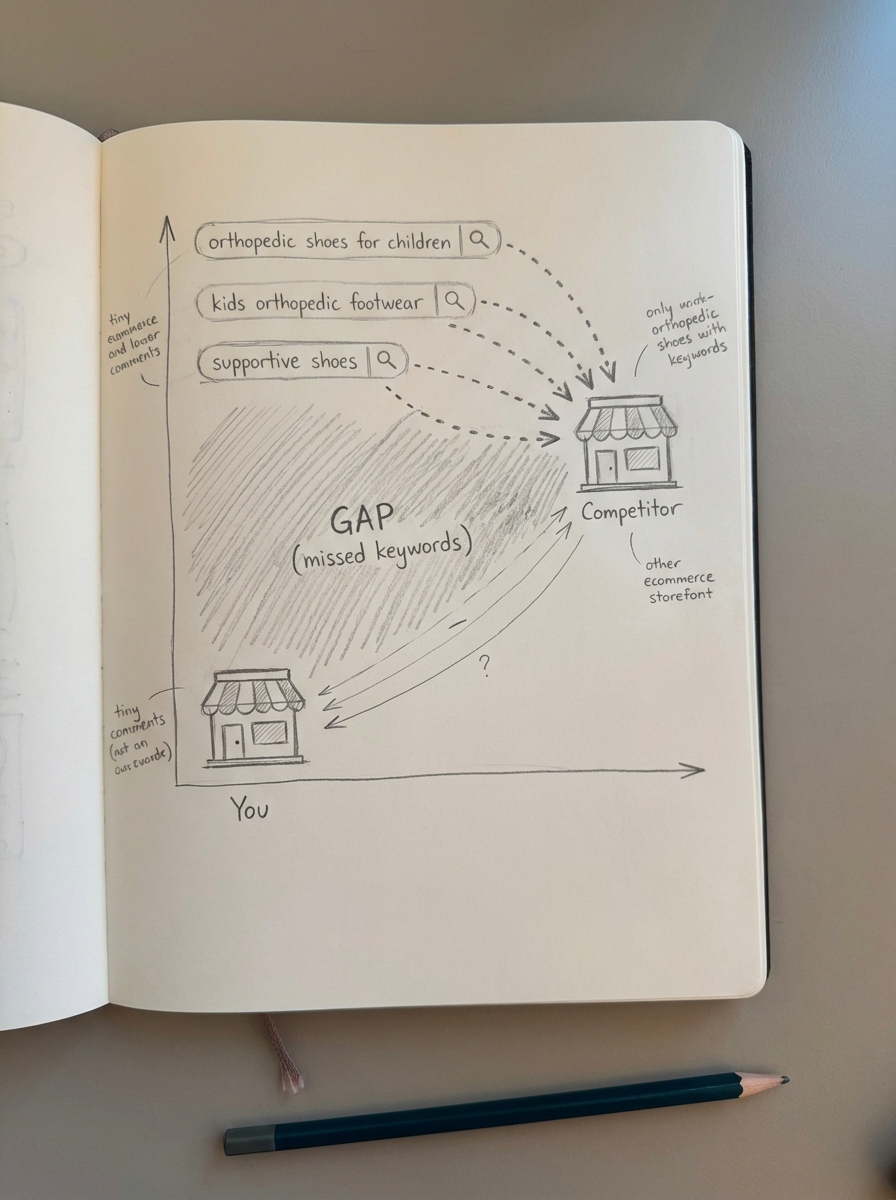 orthopedic shoes for children
kids orthopedic footwear
supportive shoes
tiny
and
comments
only
orthopedic
shoes with
keywords
GAP
(missed keywords)
Competitor
other
ecommerce
storefont
?
tiny
comments
You